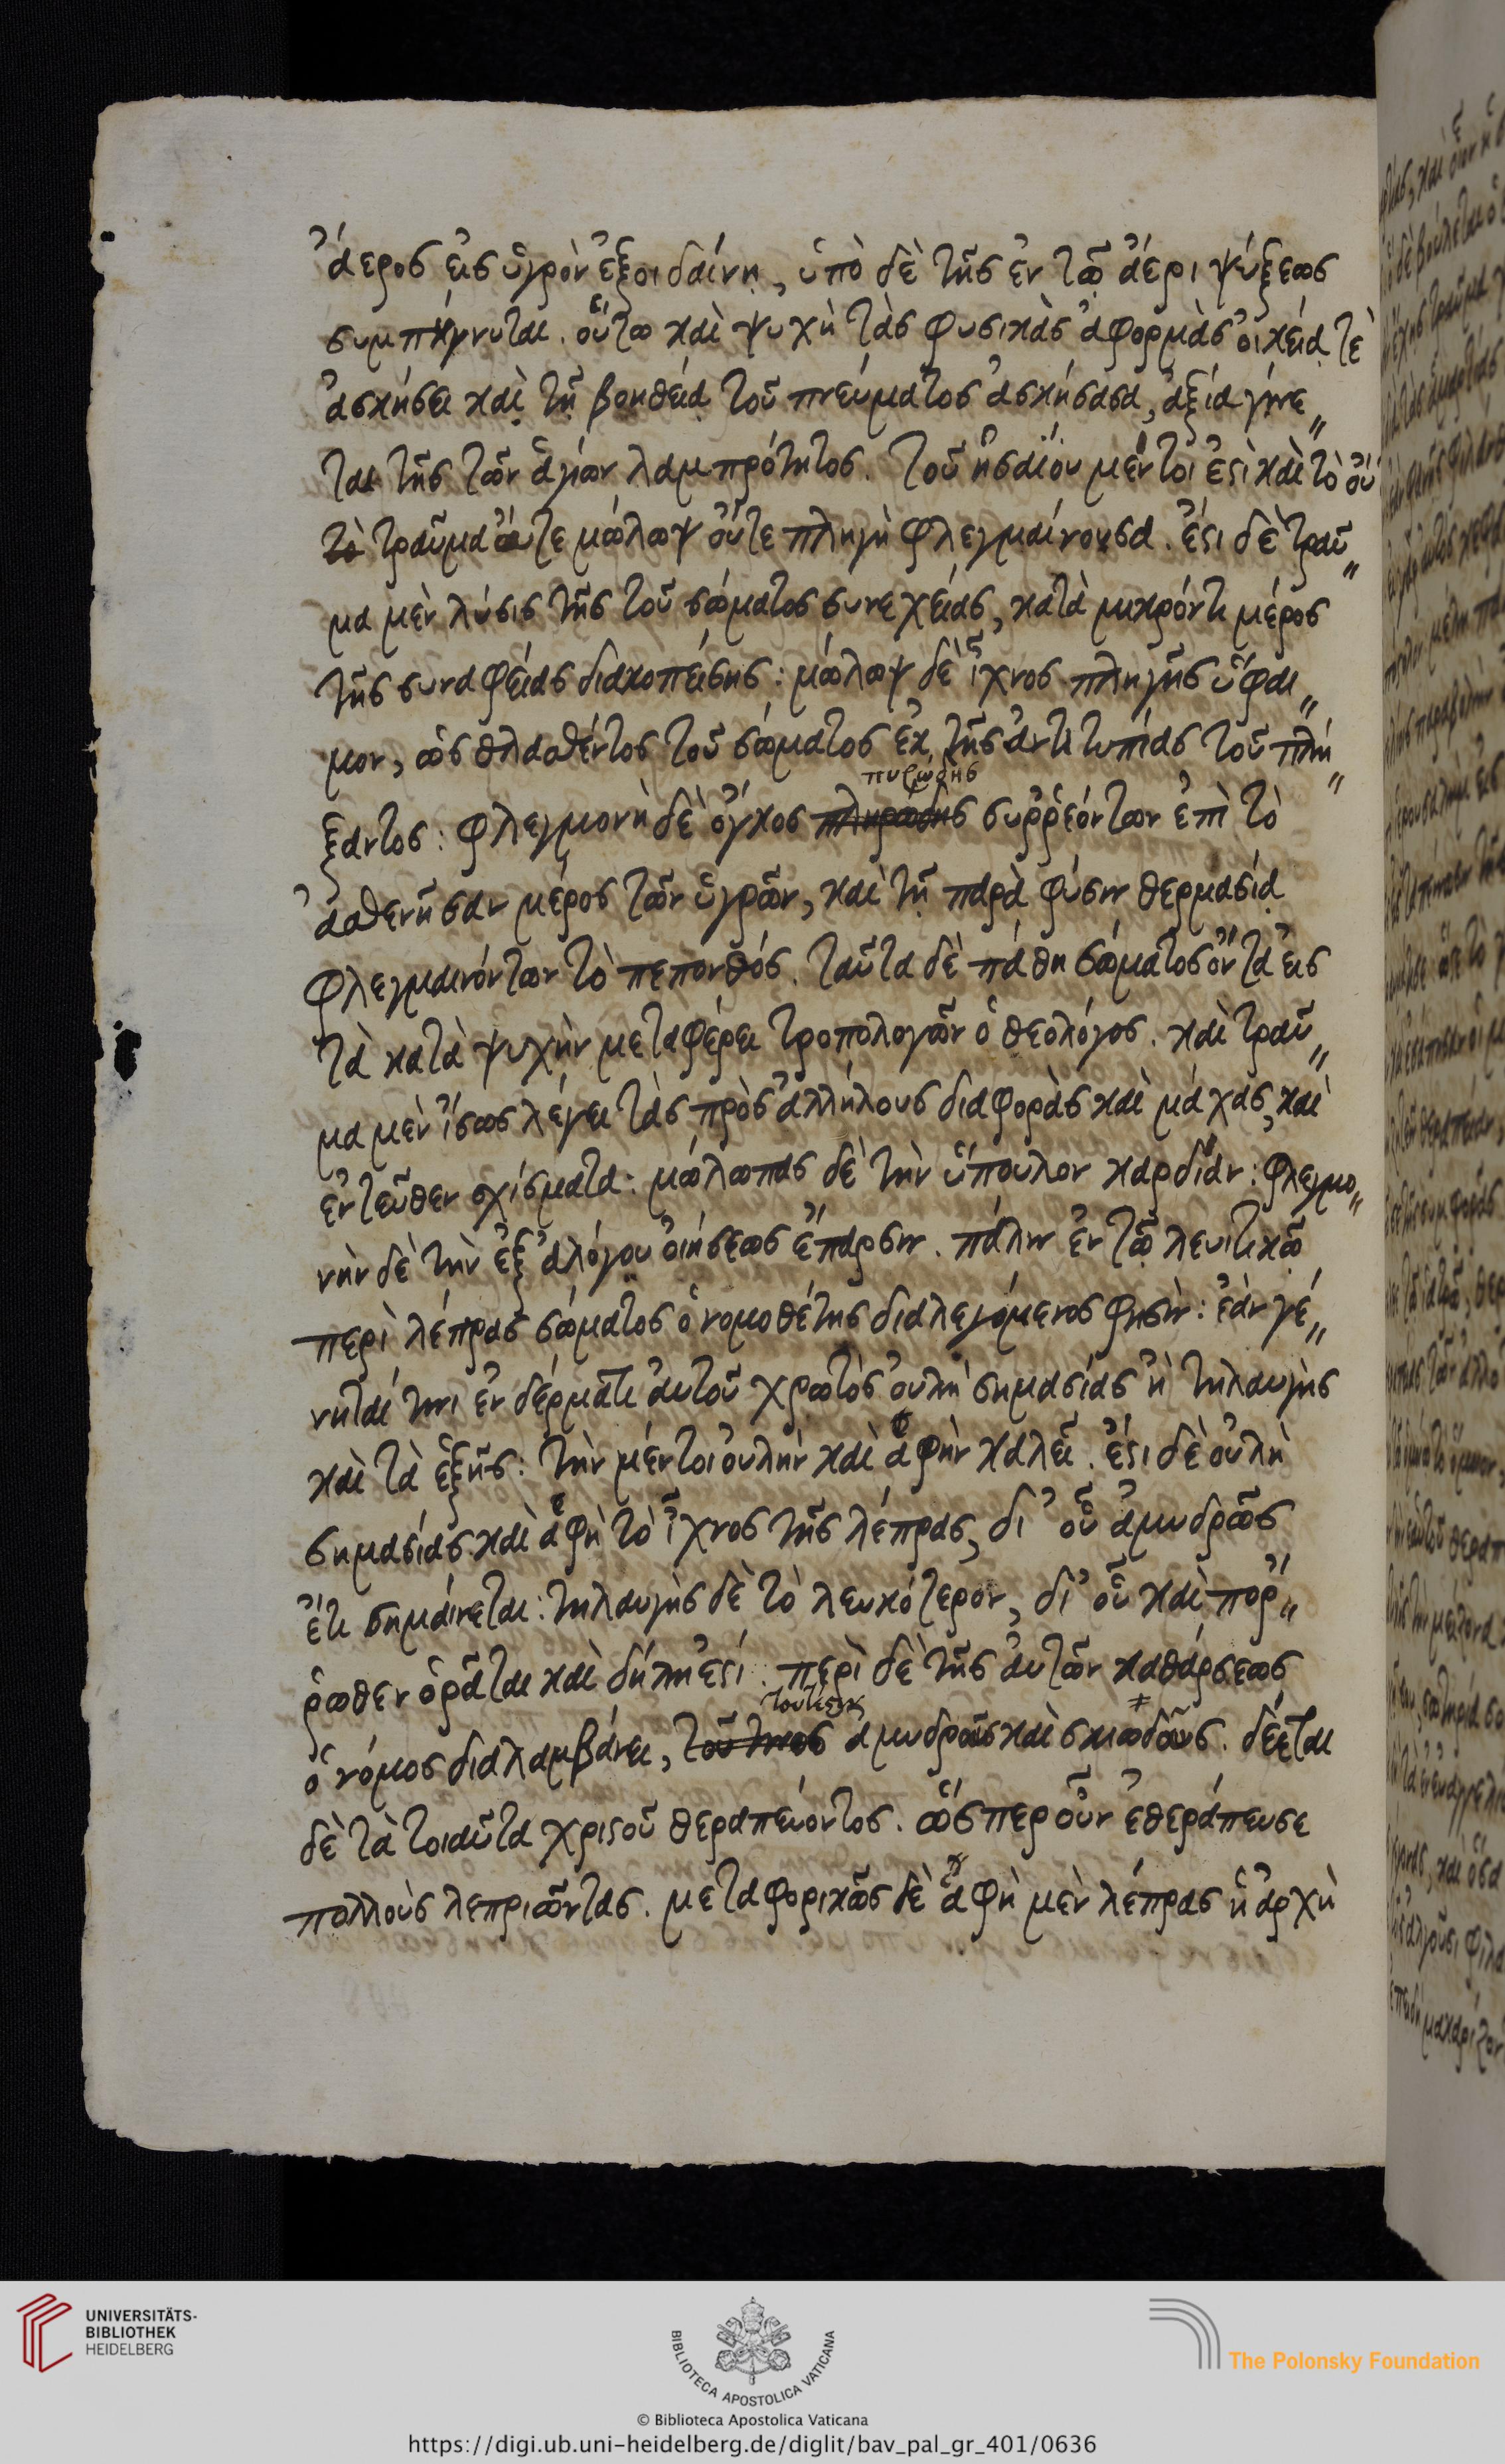 ἀέρος εἰς ὑγρὸν ἐξοιδαίνῃ, ὑπὸ δὲ τῆς ἐν τῷ ἀέρι ψύξεως
συμπήγνυται. οὕτω καὶ ψυχὴ τὰς φυσικὰς ἀφορμὰς οἰκείᾳ τὲ
ἀσκήσει καὶ τῇ βοηθείᾳ τοῦ πνεύματος ἀσκήσασα, ἀξία γίνε〃
ται τῆς τῶν ἁγίων λαμπρότητος. τοῦ ἡσαΐου μέντοι ἐϛὶ καὶ τὸ οὐ
τὸ τραῦμα οὔτε μώλωψ οὔτε πληγὴ φλεγμαίνουσα. ἔϛι δὲ τραῦ〃
μα μὲν λύσις τῆς τοῦ σώματος συνεχείας, κατὰ μικρόν τι μέρος
τῆς συναφείας διακοπείσης: μώλωψ δὲ ἴχνος πληγῆς ὕφαι〃
μον, ὡς θλασθέντος τοῦ σώματος ἐκ τῆς ἀντιτυπίας τοῦ πλή〃
πυρώδης
ξαντος: φλεγμονὴ δὲ ὄγκος πληρώδης συῤῥεόντων ἐπὶ τὸ
ἀσθενῆσαν μέρος τῶν ὑγρῶν, καὶ τῇ παρὰ φύσιν θερμασίᾳ
φλεγμαινόντων τὸ πεπονθός. ταῦτα δὲ πάθη σώματος ὄντα εἰς
τὰ κατὰ ψυχὴν μεταφέρει τροπολογῶν ὁ θεολόγος. καὶ τραῦ〃
μα μὲν ἴσως λέγει τὰς πρὸς ἀλλήλους διαφορὰς καὶ μάχας, καὶ
ἐντεῦθεν σχίσματα: μώλωπας δὲ τὴν ὕπουλον καρδίαν: φλεγμο〃
νὴν δὲ τὴν ἐξ ἀλόγου οἰήσεως ἔπαρσιν. πάλιν ἐν τῷ λευιτικῷ
περὶ λέπρας σώματος ὁ νομοθέτης διαλεγόμενος φησὶν: ἐὰν γέ〃
νηταί τινι ἐν δέρματι αὐτοῦ χρωτὸς οὐλὴ σημασίας ἢ τηλαυγὴς
καὶ τὰ ἑξῆς: τὴν μέντοι οὐλὴν καὶ ἁφὴν καλεῖ. ἔϛι δὲ οὐλὴ
σημασίας καὶ ἁφὴ τὸ ἴχνος τῆς λέπρας, δι' οὗ ἀμυδρῶς
ἔτι σημαίνεται: τηλαυγὴς δὲ τὸ λευκότερον, δι' οὗ καὶ πόῤ〃
ῥωθεν ὁρᾶται καὶ δήλη ἐϛί. περὶ δὲ τῆς αὐτῶν καθάρσεως
τουτέϛιν
ὁ νόμος διαλαμβάνει, ἀμυδρῶς καὶ σκιωδῶς. δέεται
δὲ τὰ τοιαῦτα χριϛοῦ θεραπεύοντος. ὥσπερ οὖν ἐθεράπευσε
πολλοὺς λεπριῶντας. μεταφορικῶς δὲ ἁφὴ μὲν λέπρας ἡ ἀρχὴ
UNIVERSITÄTS-
BIBLIOTHEK
HEIDELBERG
BIBLIOTECA APOSTOLICA VATICANA
The Polonsky Foundation
© Biblioteca Apostolica Vaticana
https://digi.ub.uni-heidelberg.de/diglit/bav_pal_gr_401/0636